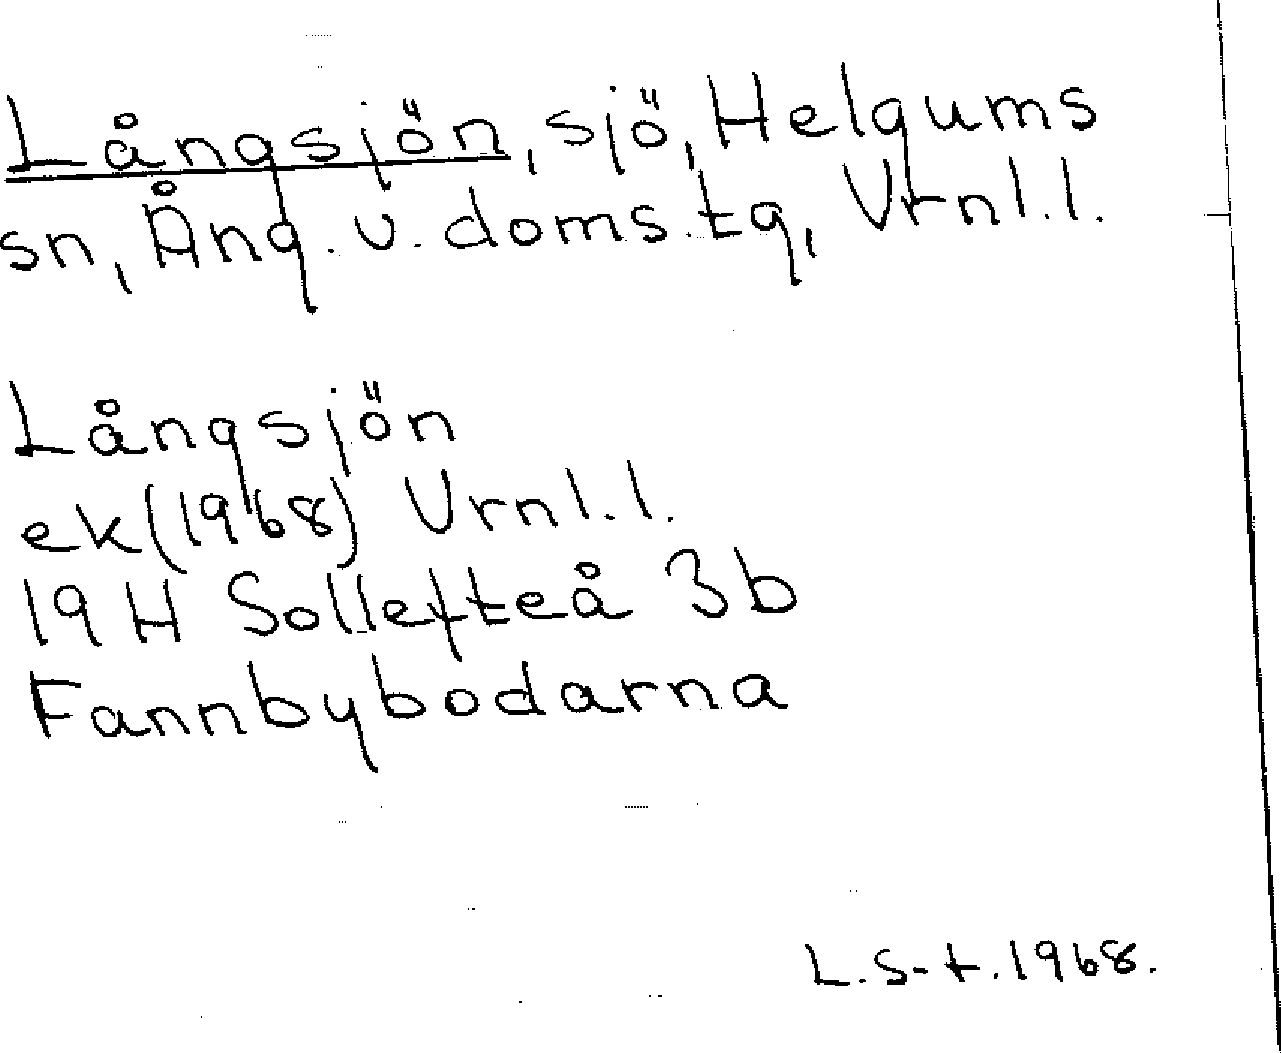 Långsjön, sjö, Helgums
sn, Ång. v. doms.tg, Vrnl.l.
Långsjön
ek(1968) Vrnl.l.
19 H Sollefteå 3b
Fannbybodarna
L.S-t.1968.